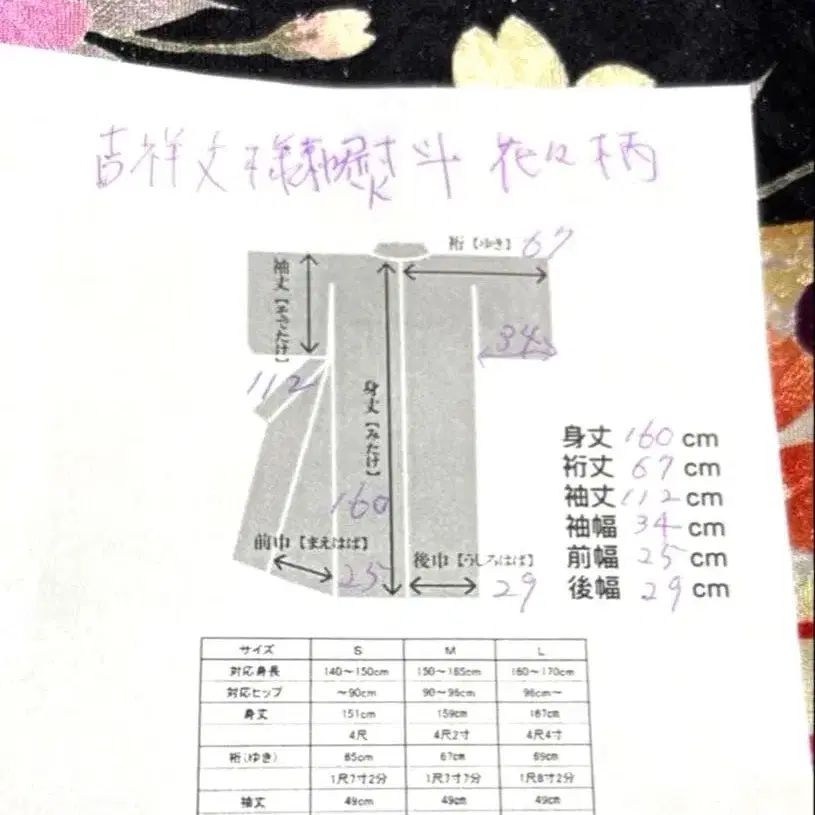 吉祥文様熨斗 花々柄
裄【ゆき】67
袖丈【そでたけ】
34
112
身丈【みたけ】
160
前巾【まえはば】
25
後巾【うしろはば】
29
身丈 160 cm
裄丈 67 cm
袖丈 112 cm
袖幅 34 cm
前幅 25 cm
後幅 29 cm
サイズ S M L
対応身長 140～150cm 150～165cm 160～170cm
対応ヒップ ～90cm 90～96cm 96cm～
身丈 151cm 159cm 167cm
4尺 4尺2寸 4尺4寸
裄(ゆき) 65cm 67cm 69cm
1尺7寸2分 1尺7寸7分 1尺8寸2分
袖丈 49cm 49cm 49cm